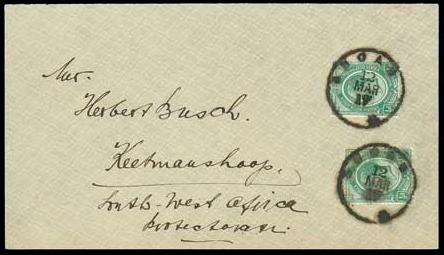 Mr.
Herbert Busch.
Keetmanshoop.
South-West Africa
Protectorate.
12
MAR
12
MAR